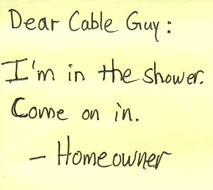 Dear Cable Guy:
I'm in the shower.
Come on in.
- Homeowner